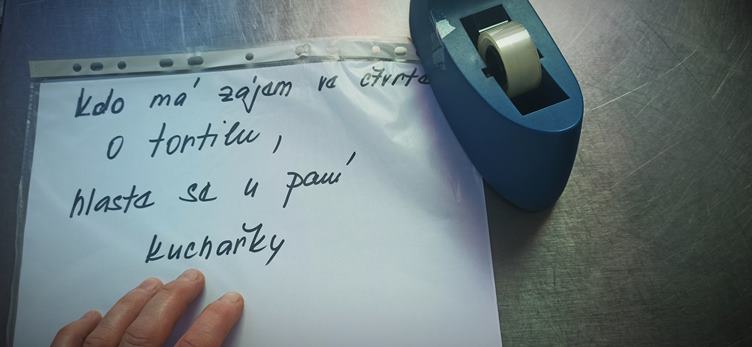 kdo má zájem ve čtvrte
o tortilu,
hlaste se u paní
kuchařky